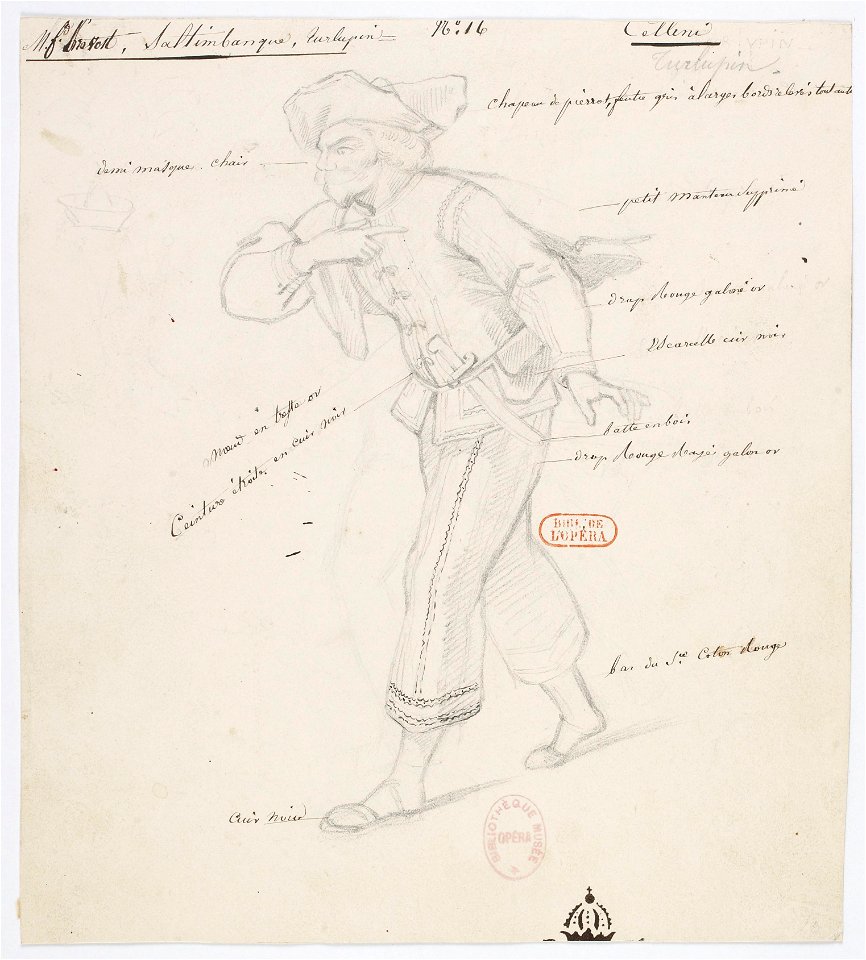 Mr. fs. Prevost, Saltimbanque, turlupin
No. 16
Cellini
Turlupin
chapeau de pierrot, feutre gris à larges bords relevés tout autour
demi masque. chair
petit manteau supprimé
drap Rouge galoné or
Escarcelle cuir noir
Noeud en tresse or
Ceinture étroite en cuir noir
batte en bois
drap Rouge galon or
BIBL. DE
L'OPÉRA
bas du Sre Coton Rouge
cuir noir
BIBLIOTHÈQUE MUSÉE
OPÉRA